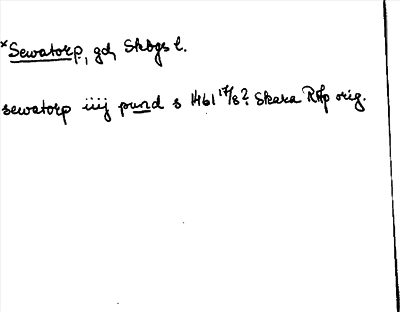 *Sewatorp, gd, Skögs l.
sewatorp iiij pund s 1461 17/8? Skara Rfp orig.